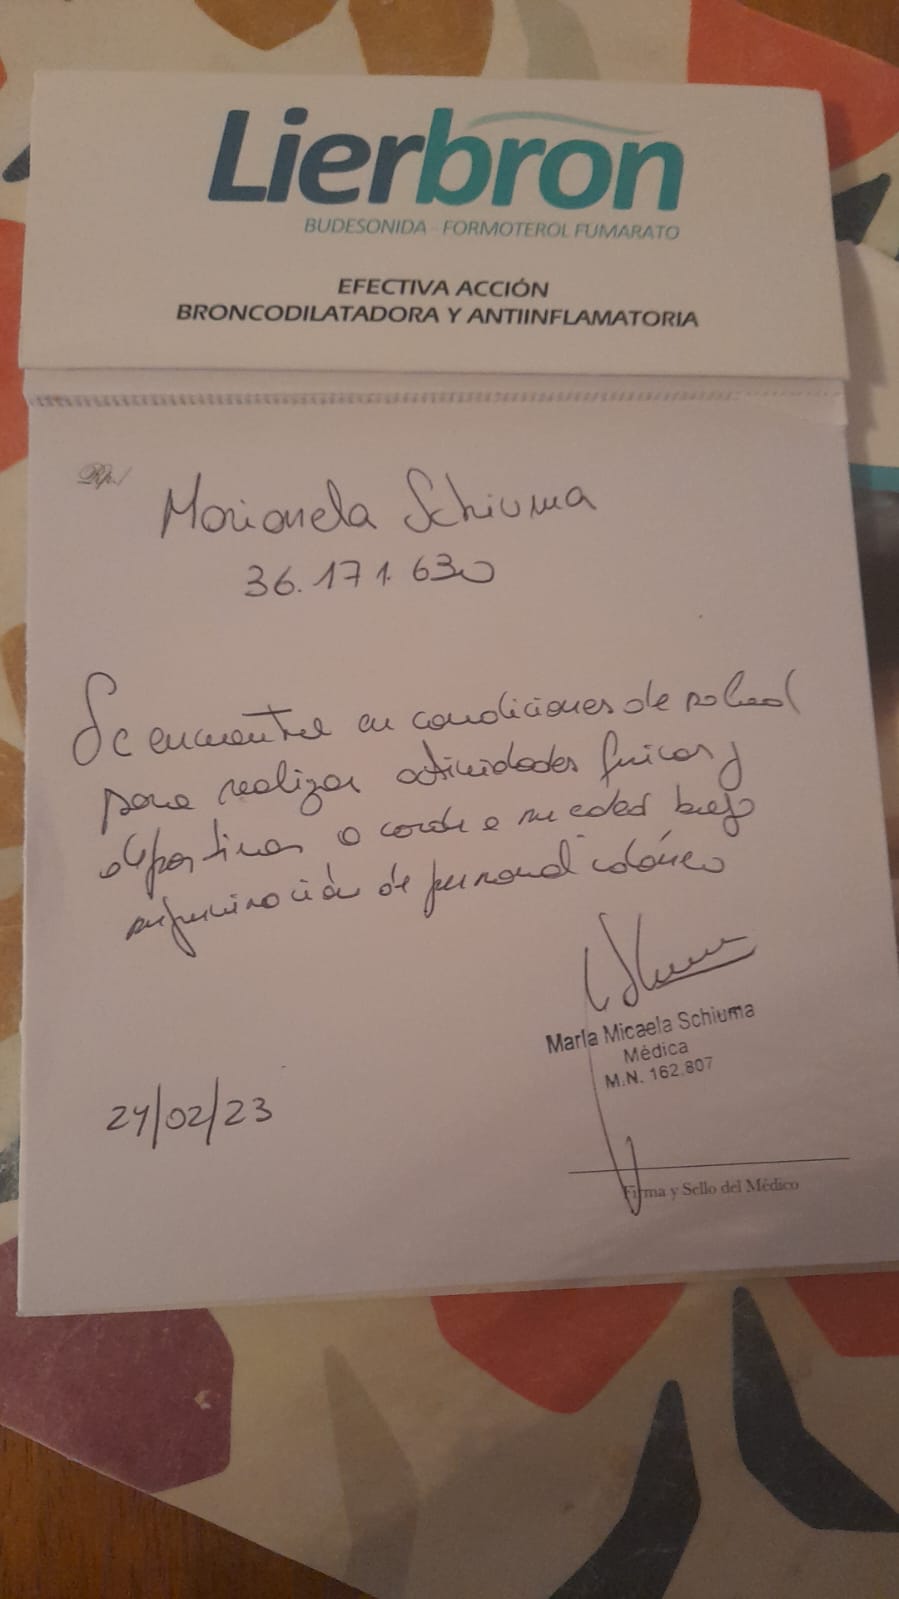 Lierbron
BUDESONIDA - FORMOTEROL FUMARATO
EFECTIVA ACCIÓN
BRONCODILATADORA Y ANTIINFLAMATORIA
Rp./
Marianela Schiuma
36.171.630
Se encuentra en condiciones de salud
para realizar actividades físicas y
deportivas acorde a su edad bajo
supervisación de personal idóneo
María Micaela Schiuma
Médica
M.N. 162.807
24/02/23
Firma y Sello del Médico